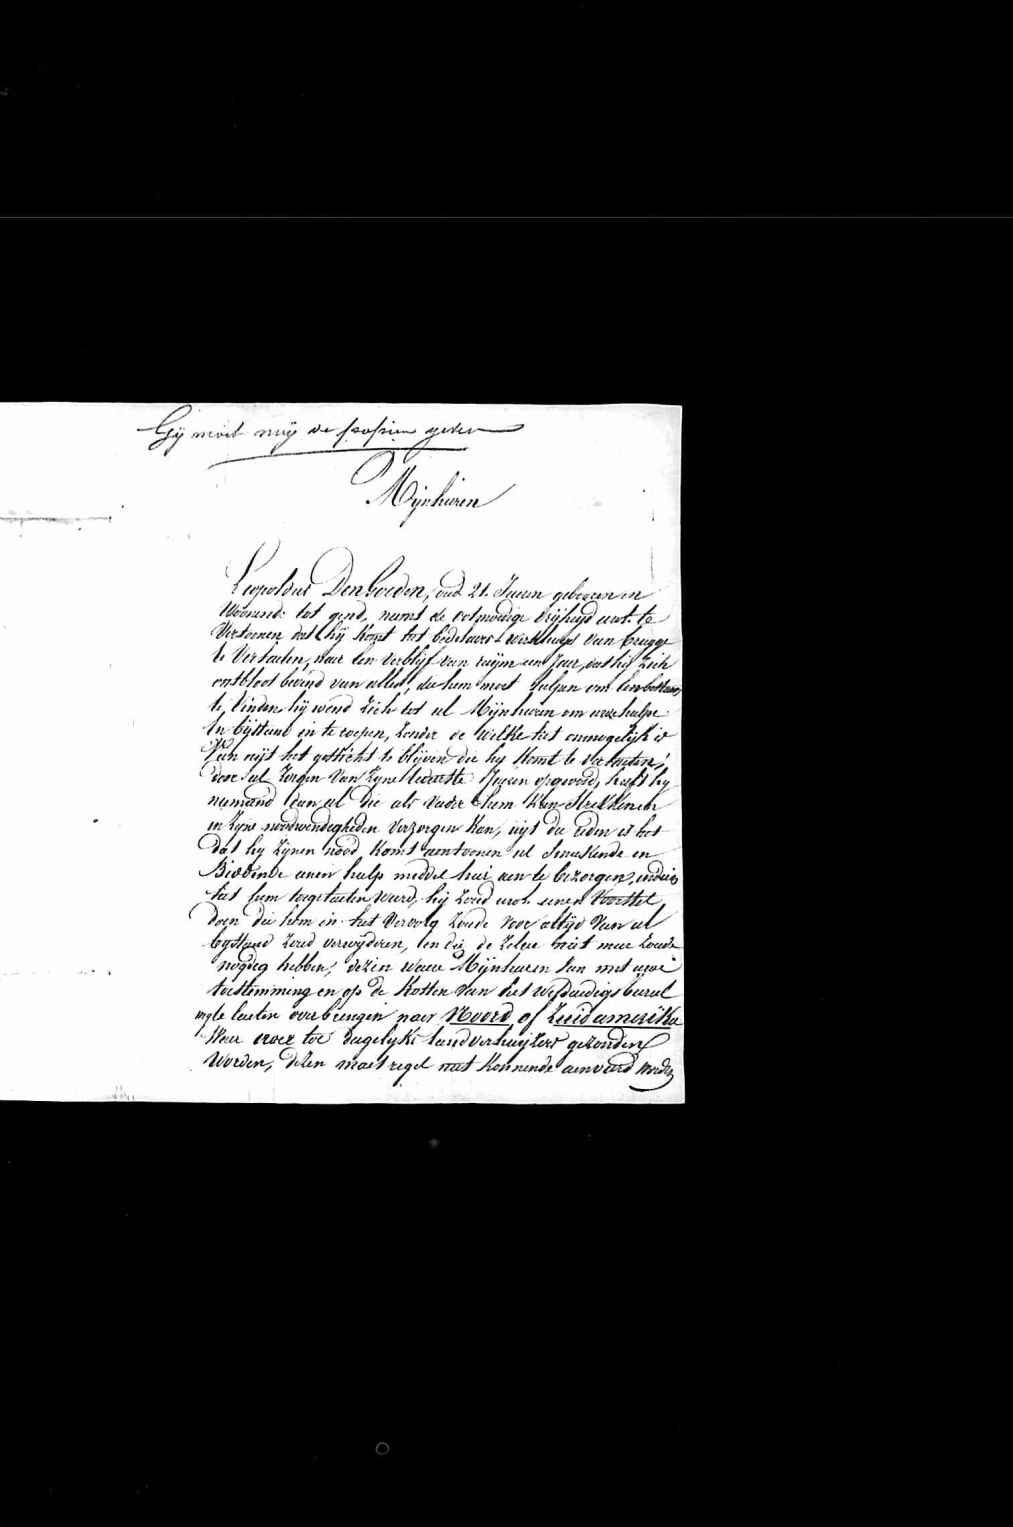 Gij moet mij de papier geven
Mijnheeren
Leopoldus DenGoeden, oud 21. Jaeren gebooren en
Woonend: tot gend, neemt de ootmoedige vrijheyd aen te
Vertoonen dat hij komt tot bedelaers-werkhuys van brugge
te Verlaeten, naer een verblijf van ruijm een Jaer, dat hij zich
ontbloot bevind van alles, die hem moet helpen om een bestaen
te vinden hij wend zich tot ul Mijnheeren om uwe hulpe
en bijstand in te roepen, zonder de welke het onmogelijk is
van uijt het gesticht te blijven die hij komt te verlaeten,
door ul zorgen van zyne Jaeren opgevoed, heeft hij
niemand dan ul die als vader hem kan strekken en
in zyne noodwendigheden verzorgen kan, uijt die reden is het
dat hij zijnen nood komt aentoonen ul smeekende en
Biddende eenen hulp middel hem aen te bezorgen, indien
het hem toegelaeten waere, hij zoud een voorstel
doen die hem in het vervolg zoude voor altijd van ul
bystand zoud verwyderen, en die de zelve niet meer zoude
noodig hebben, dezen waere Mijnheeren hem met uwe
toestemming en op de kosten van het weldaedigs bureel
te laeten overbrengen naer Noord of Zuid amerika
Waer toe dagelijks landverhuijzers gezonden
Worden, dezen maetregel niet konnende aenveird worden